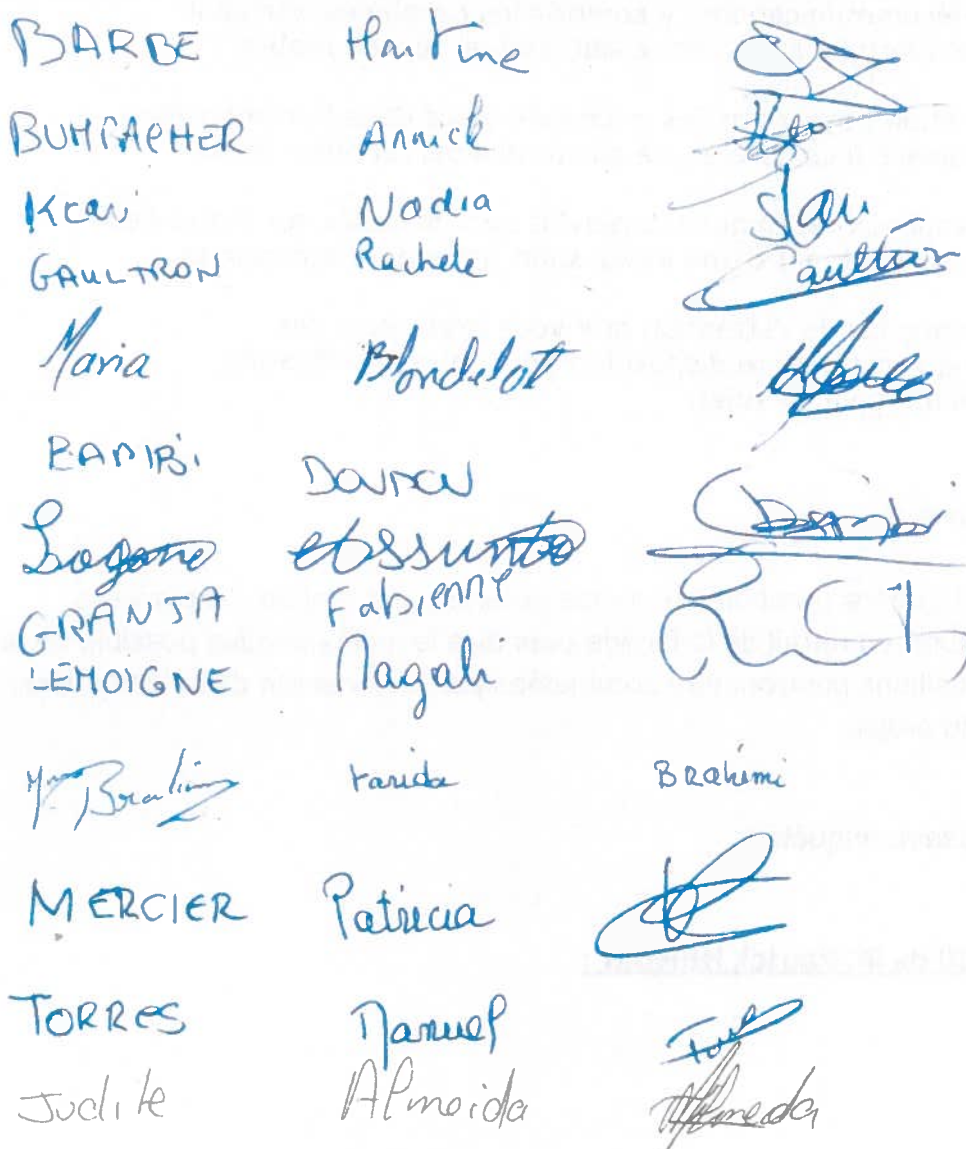 BARBE Martine
BUHPAPHER Annick
Kcavi Nadia
GAULTRON Rachele Gaultron
Maria Blondelot
BAMBI DOUDOU Bambi
Logane Assunta
GRANJA Fabienne
LEMOGNE Magali
Mme Brahimi Farida Brahimi
MERCIER Patricia
TORRES Manuel
Judite Almeida Almeida